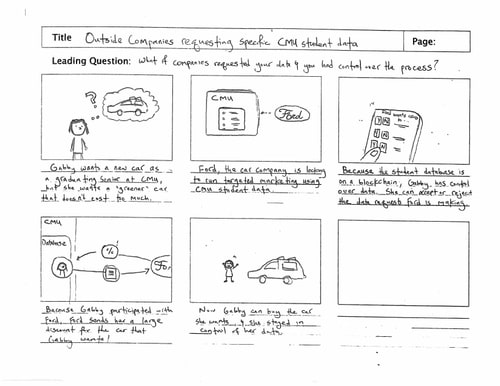 Title Outside Companies requesting specific CMU student data Page:
Leading Question: What if companies requested your data & you had control over the process?
CMU
Ford
Y N
Y N
Y N
Gabby wants a new car as
a graduating senior at CMU,
but she wants a "greener" car
that doesn't cost too much.
Ford, the car company is looking
to run targeted marketing using
CMU student data.
Because the student database is
on a blockchain, Gabby has control
over data. She can accept or reject
the data requests Ford is making.
CMU
Database
%
Ford
Because Gabby participated with
Ford, Ford sends her a large
discount for the car that
Gabby wants!
Now Gabby can buy the car
she wants, & she stayed in
control of her data.